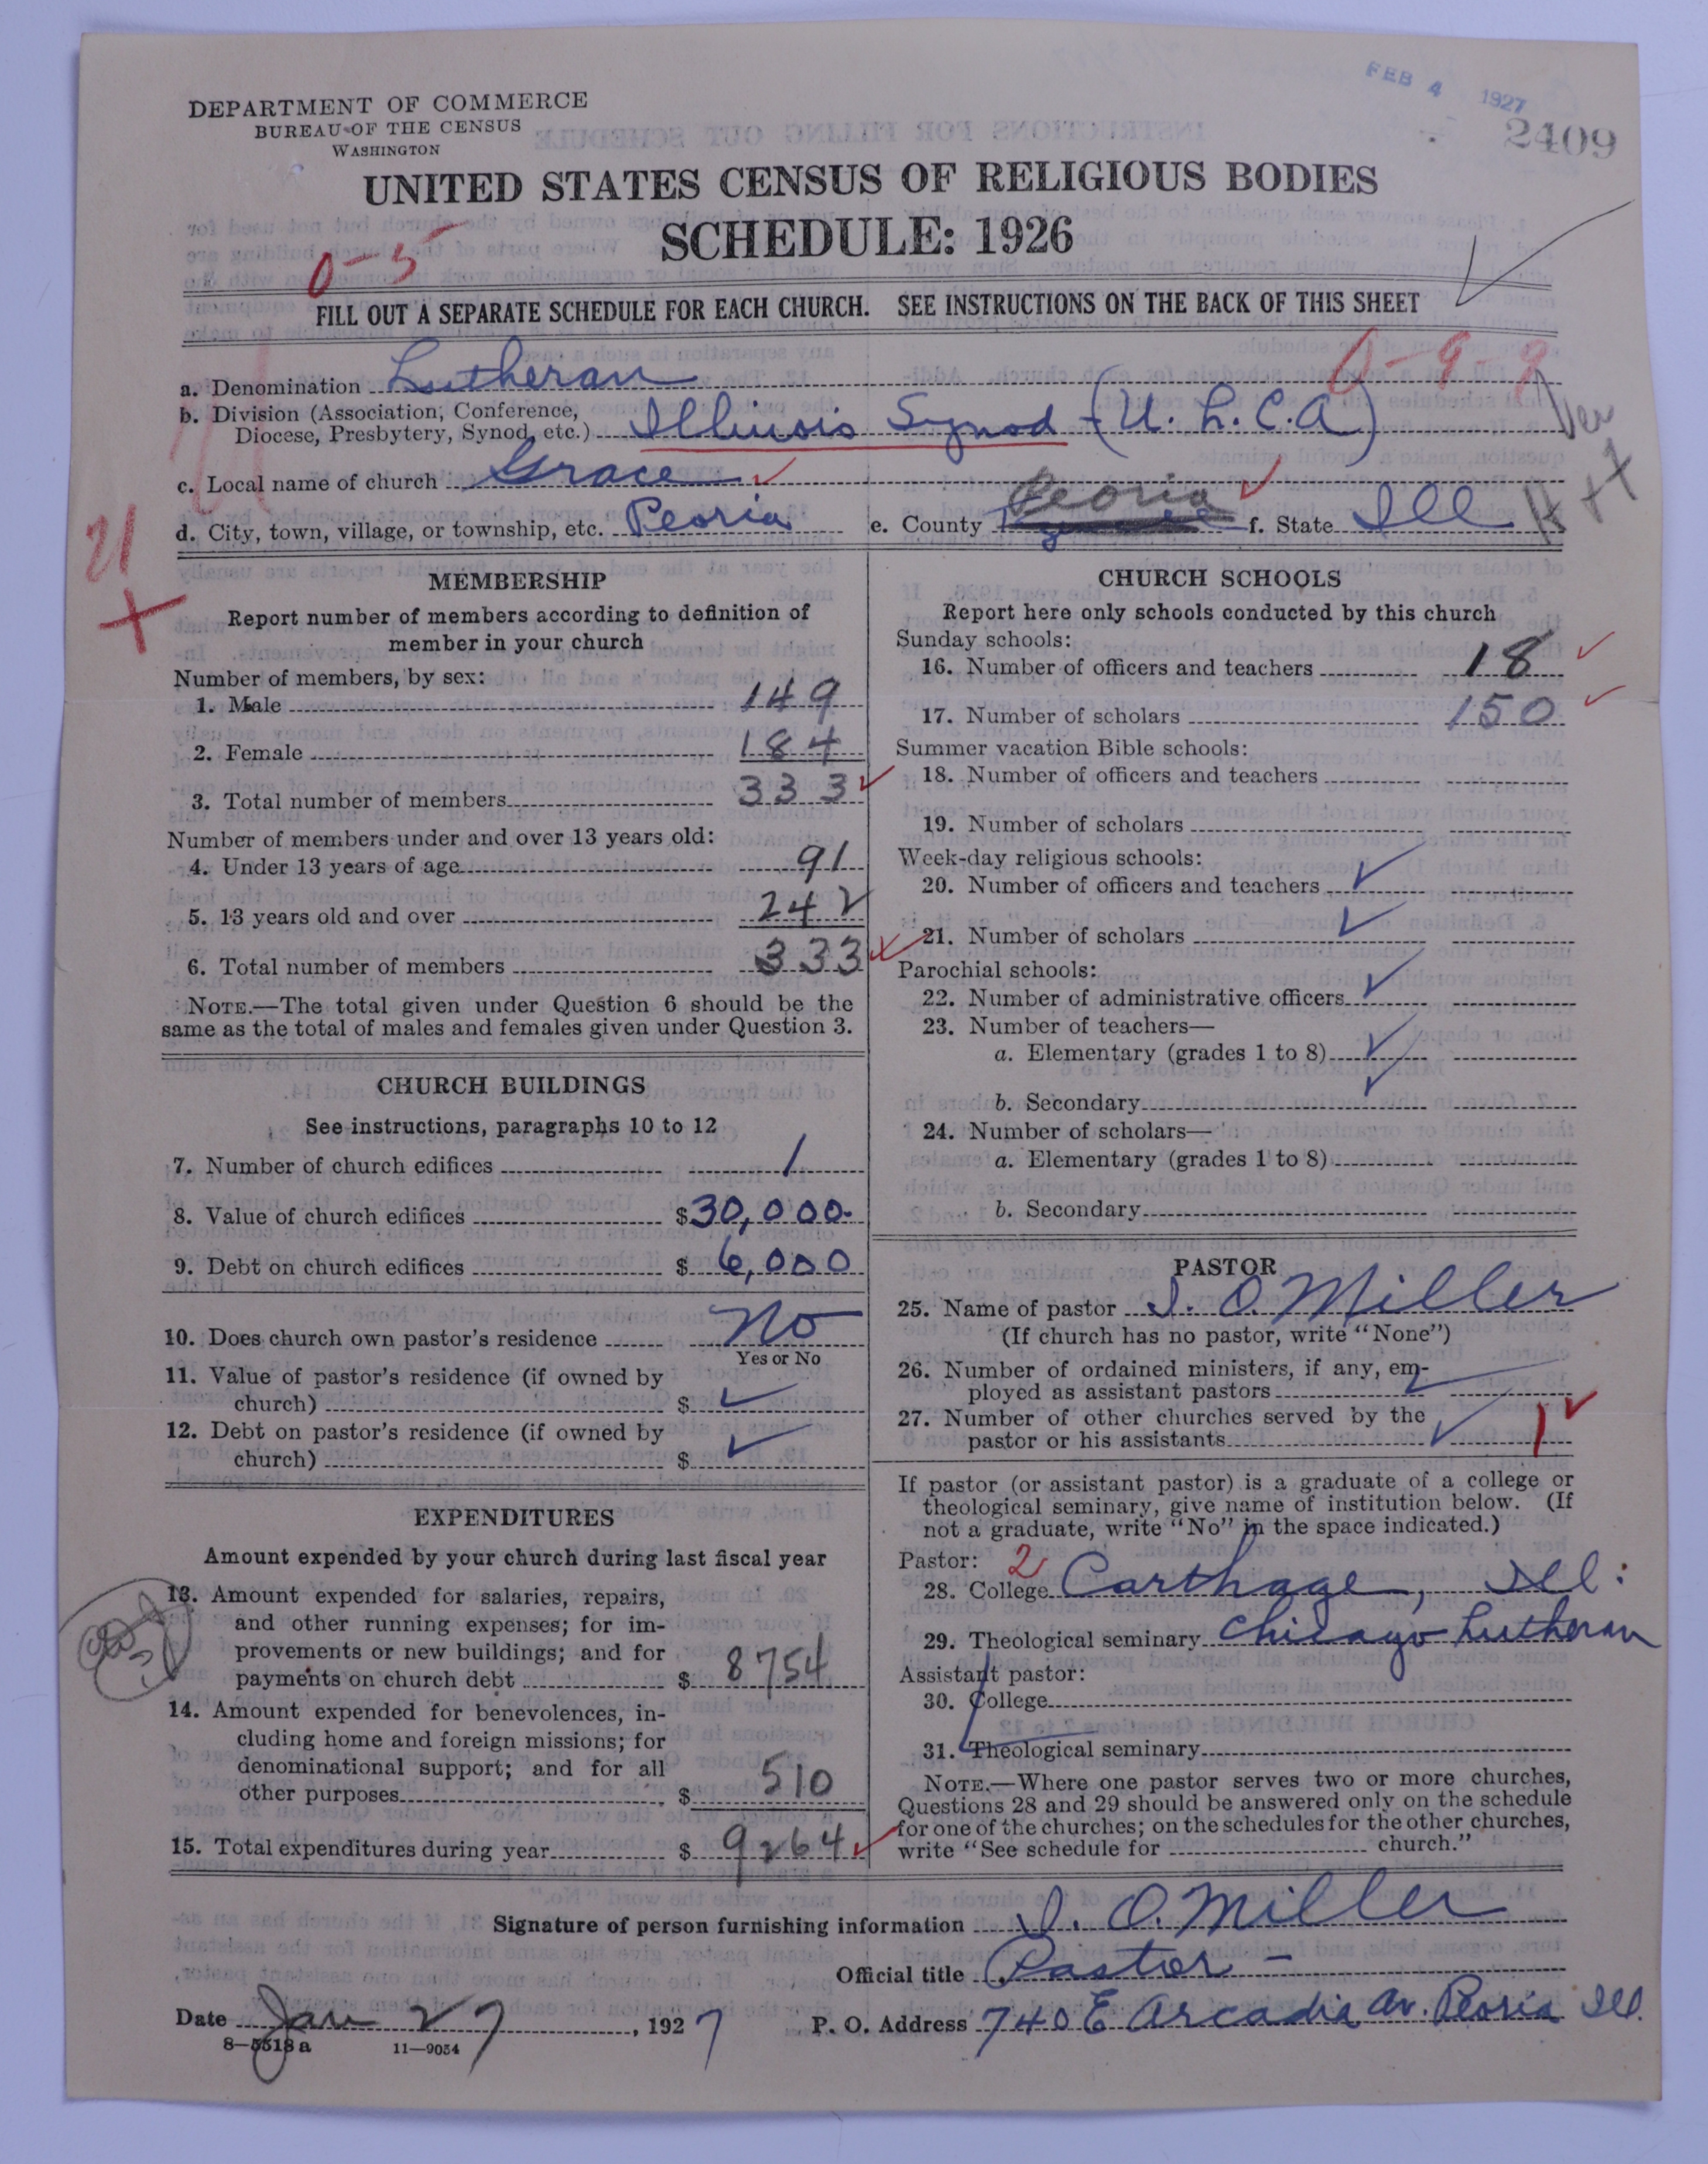 FEB 4 1927
2409
DEPARTMENT OF COMMERCE
BUREAU OF THE CENSUS
WASHINGTON
UNITED STATES CENSUS OF RELIGIOUS BODIES
SCHEDULE: 1926
0-5
FILL OUT A SEPARATE SCHEDULE FOR EACH CHURCH. SEE INSTRUCTIONS ON THE BACK OF THIS SHEET
0-9-9
a. Denomination Lutheran
b. Division (Association, Conference,
Diocese, Presbytery, Synod, etc.) Illinois Synod (U. L. C. A)
Ver
c. Local name of church Grace
d. City, town, village, or township, etc. Peoria e. County Peoria f. State Ill
21
MEMBERSHIP
Report number of members according to definition of
member in your church
Number of members, by sex:
1. Male 149
2. Female 184
3. Total number of members 333
Number of members under and over 13 years old:
4. Under 13 years of age 91
5. 13 years old and over 242
6. Total number of members 333
NOTE.—The total given under Question 6 should be the
same as the total of males and females given under Question 3.
CHURCH BUILDINGS
See instructions, paragraphs 10 to 12
7. Number of church edifices 1
8. Value of church edifices $30,000.
9. Debt on church edifices $ 6,000
10. Does church own pastor's residence No
Yes or No
11. Value of pastor's residence (if owned by
church) $
12. Debt on pastor's residence (if owned by
church) $
EXPENDITURES
Amount expended by your church during last fiscal year
13. Amount expended for salaries, repairs,
and other running expenses; for im-
provements or new buildings; and for
payments on church debt $ 8754
14. Amount expended for benevolences, in-
cluding home and foreign missions; for
denominational support; and for all
other purposes $ 510
15. Total expenditures during year $ 9264
CHURCH SCHOOLS
Report here only schools conducted by this church
Sunday schools:
16. Number of officers and teachers 18
17. Number of scholars 150
Summer vacation Bible schools:
18. Number of officers and teachers
19. Number of scholars
Week-day religious schools:
20. Number of officers and teachers
21. Number of scholars
Parochial schools:
22. Number of administrative officers
23. Number of teachers—
a. Elementary (grades 1 to 8)
b. Secondary
24. Number of scholars—
a. Elementary (grades 1 to 8)
b. Secondary
PASTOR
25. Name of pastor I. O. Miller
(If church has no pastor, write "None")
26. Number of ordained ministers, if any, em-
ployed as assistant pastors
27. Number of other churches served by the
pastor or his assistants 1
If pastor (or assistant pastor) is a graduate of a college or
theological seminary, give name of institution below. (If
not a graduate, write "No" in the space indicated.)
Pastor: 2
28. College Carthage, Ill:
29. Theological seminary Chicago Lutheran
Assistant pastor:
30. College
31. Theological seminary
NOTE.—Where one pastor serves two or more churches,
Questions 28 and 29 should be answered only on the schedule
for one of the churches; on the schedules for the other churches,
write "See schedule for church."
Signature of person furnishing information I. O. Miller
Official title Pastor -
Date Jan 27, 1927 P. O. Address 740 E Arcadia Av. Peoria Ill.
8—5518 a 11—9054